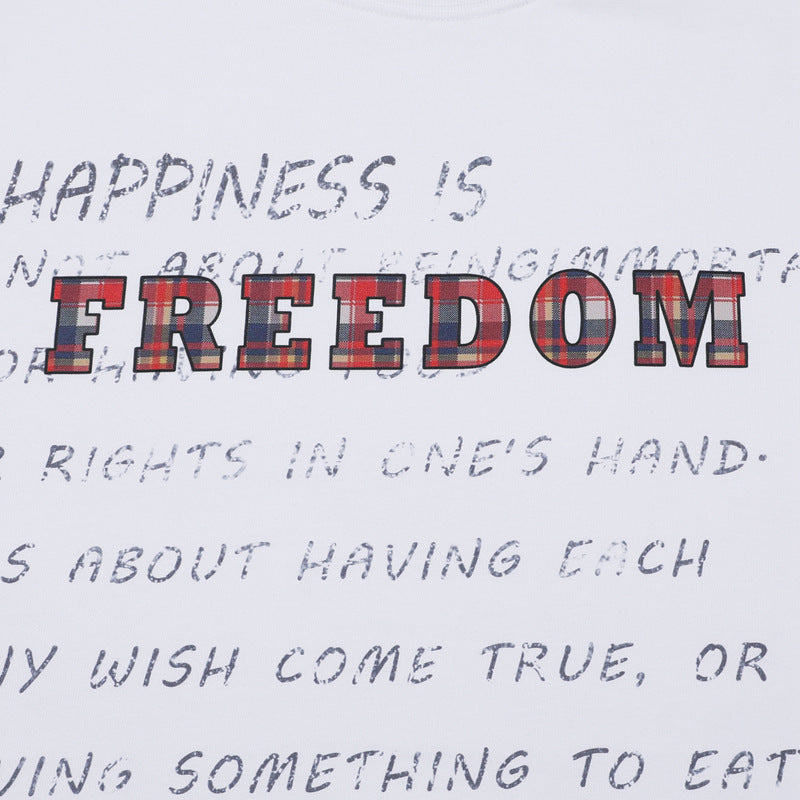 HAPPINESS IS
NOT ABOUT BEINGIMMORTA
FREEDOM
OR HAVING FOOD
R RIGHTS IN ONE'S HAND.
S ABOUT HAVING EACH
NY WISH COME TRUE, OR
VING SOMETHING TO EAT